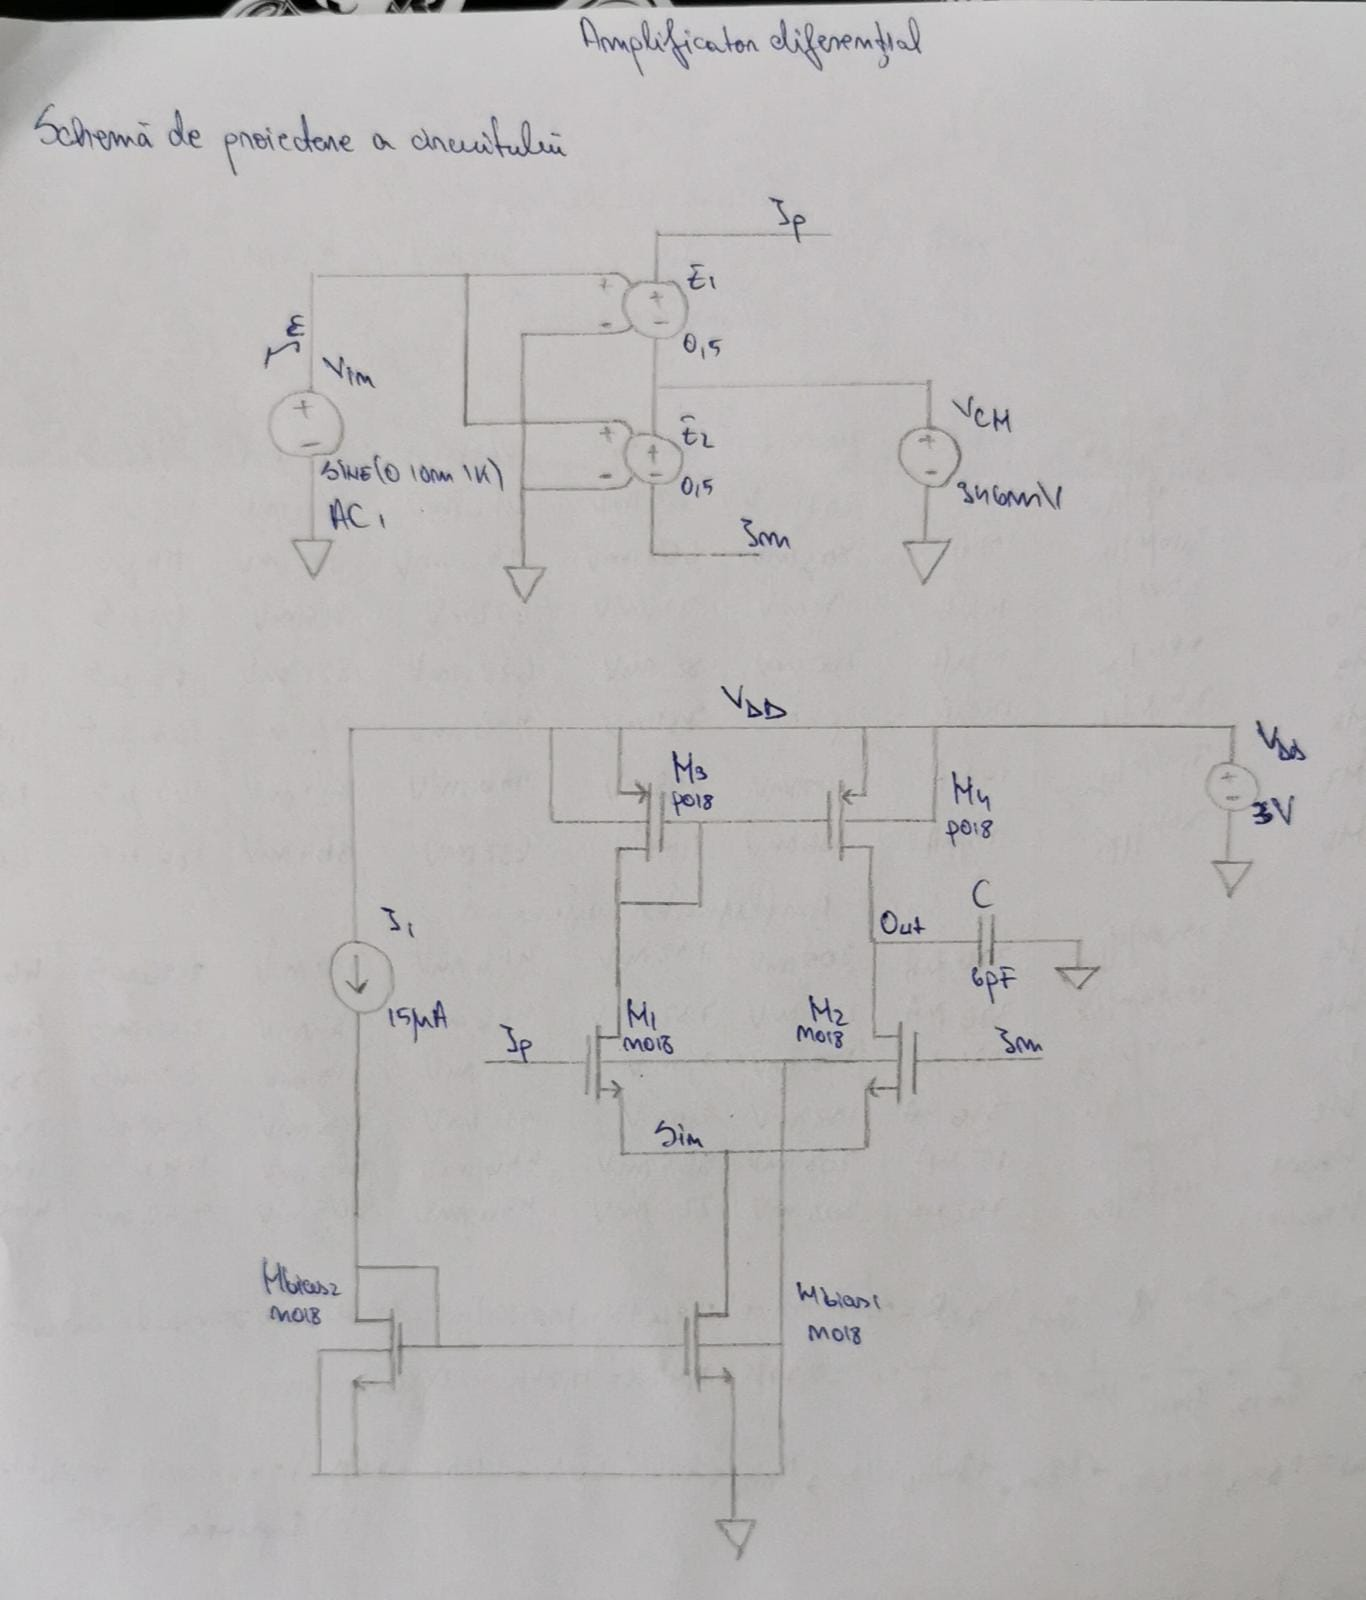 Amplificator diferențial
Schemă de proiectare a circuitului
Ip
E1
0,5
Vim
SINE(0 10m 1K)
AC 1
E2
0,5
VCM
946mV
Im
VDD
M3
p018
M4
p018
VDD
3V
I1
15μA
Out
C
6pF
M1
m018
M2
m018
Ip
Im
Sim
Mbias2
m018
Mbias1
m018